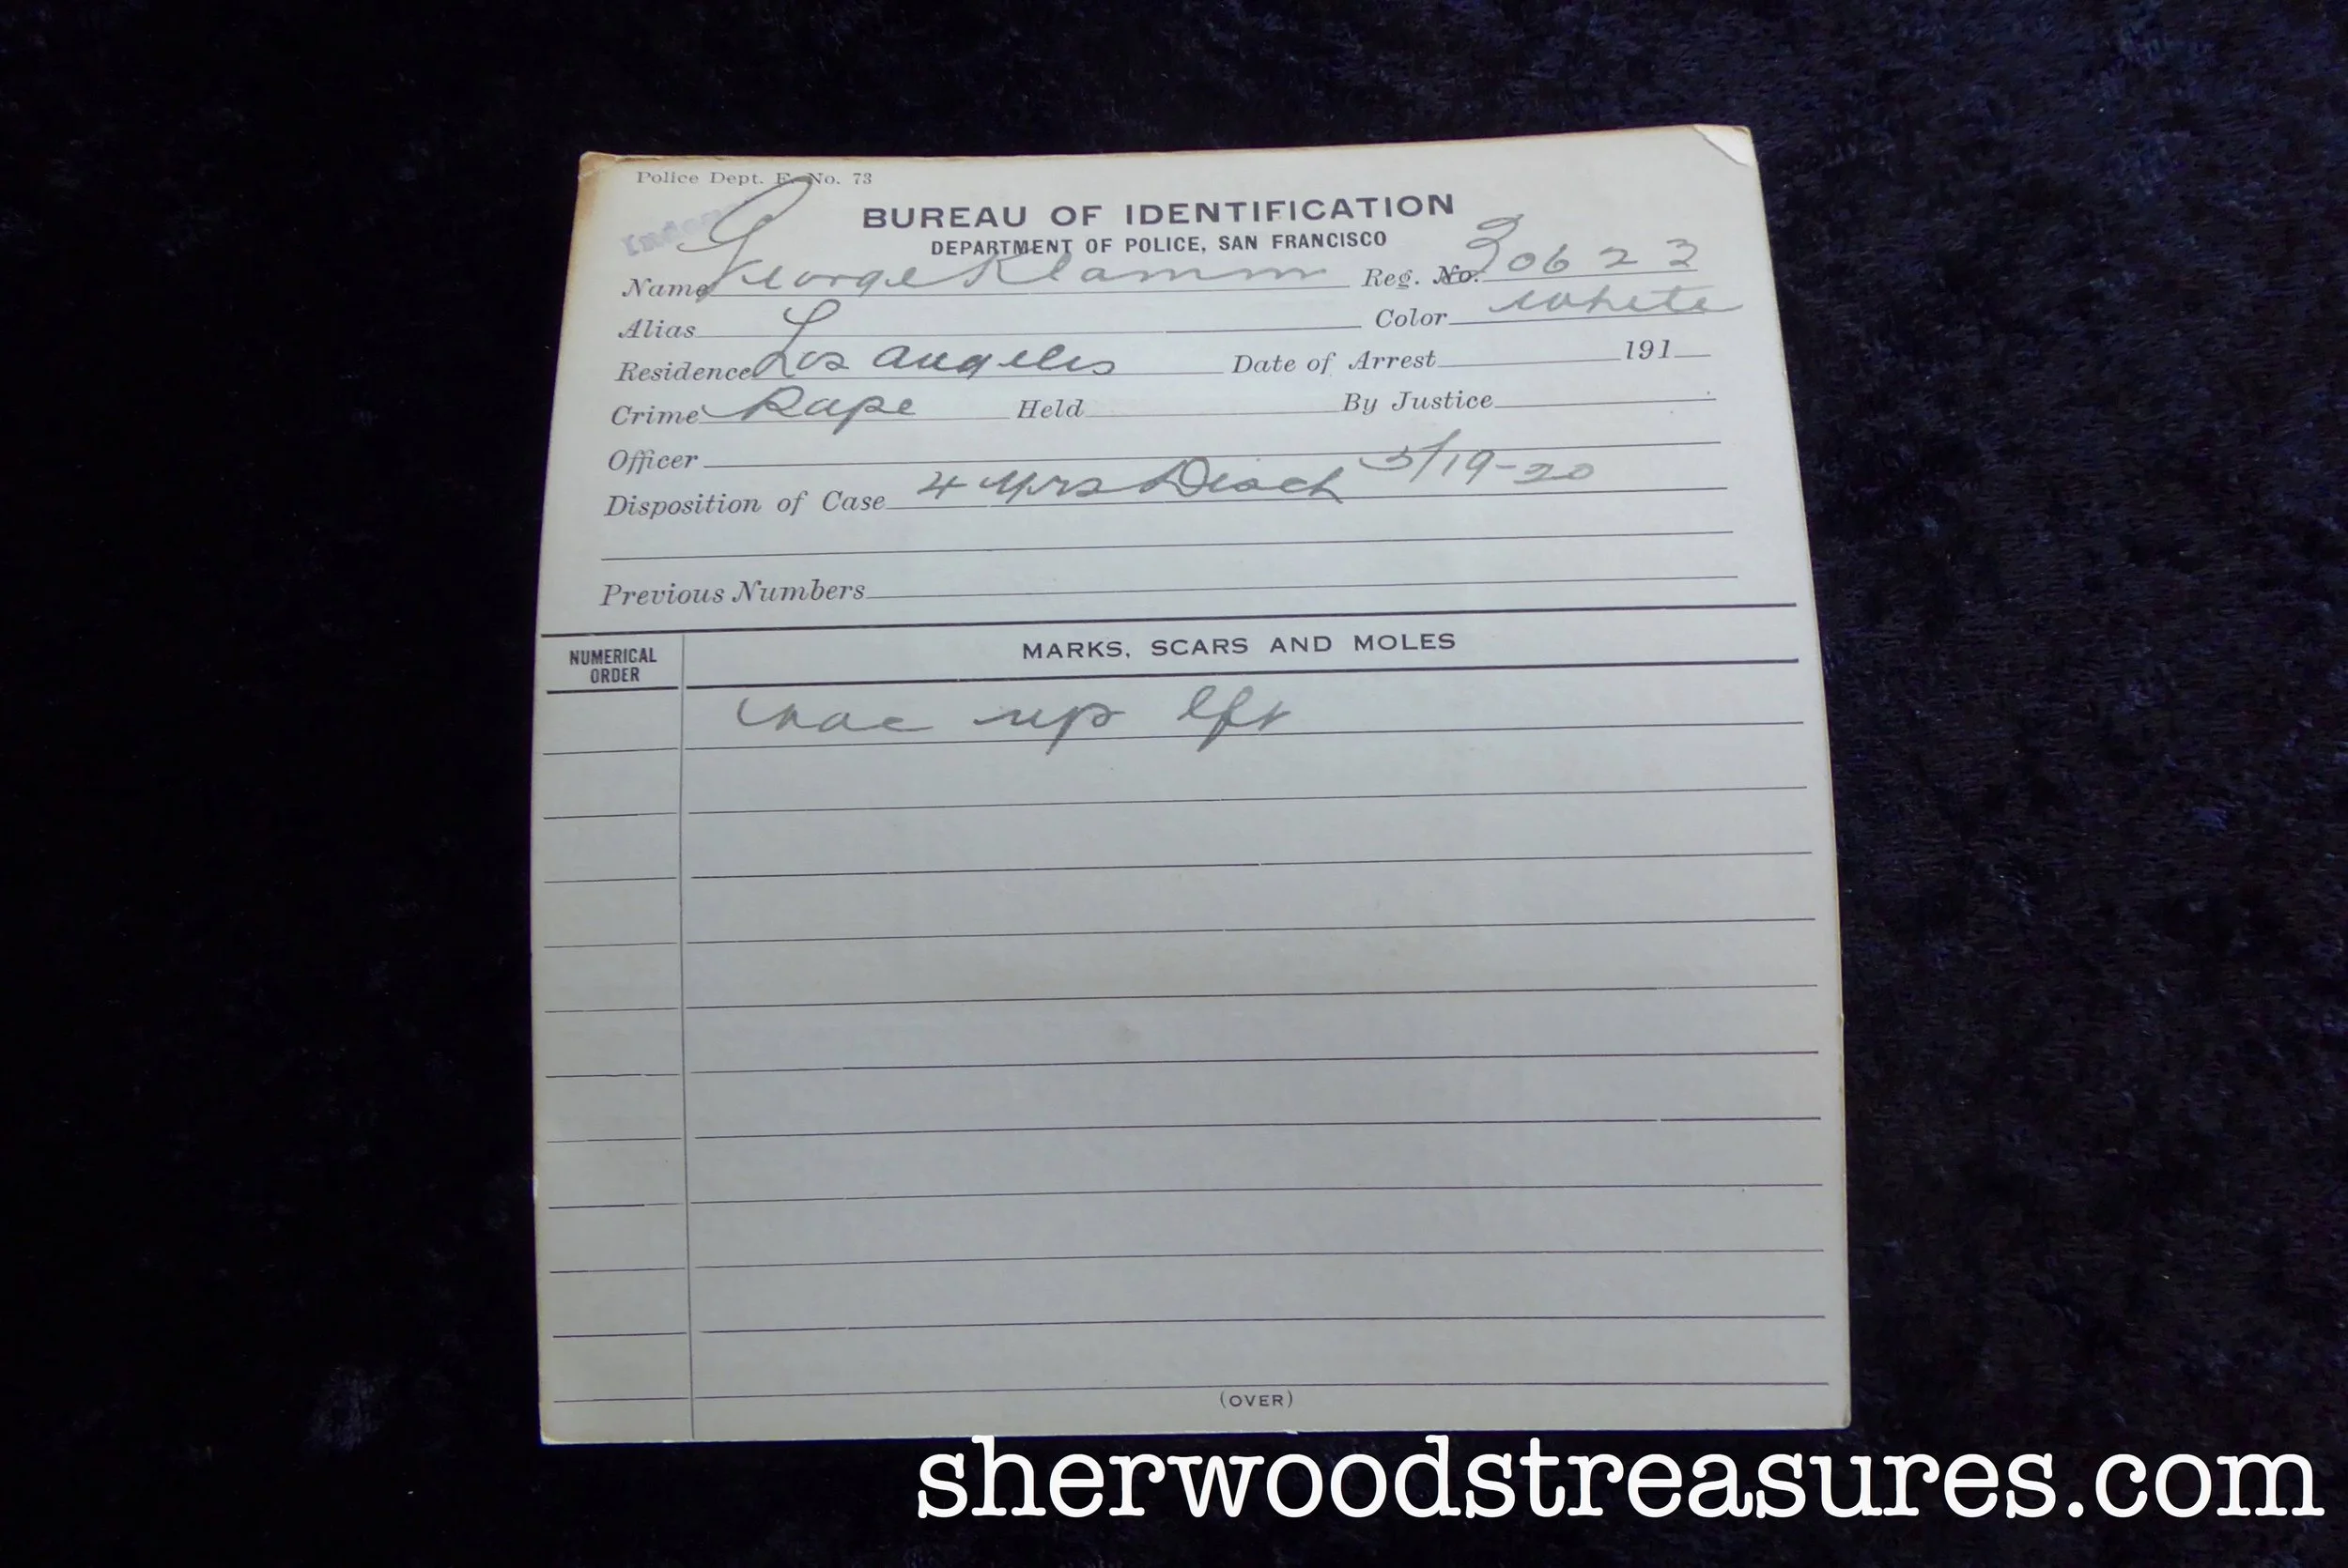 Police Dept. F. No. 73
BUREAU OF IDENTIFICATION
DEPARTMENT OF POLICE, SAN FRANCISCO
Name George Klamm Reg. No. 30623
Alias Color White
Residence Los Angeles Date of Arrest 191
Crime Rape Held By Justice
Officer
Disposition of Case 4 Yrs Disch 3/19-20
Previous Numbers
NUMERICAL ORDER MARKS, SCARS AND MOLES
vac up lft
(OVER)
sherwoodstreasures.com